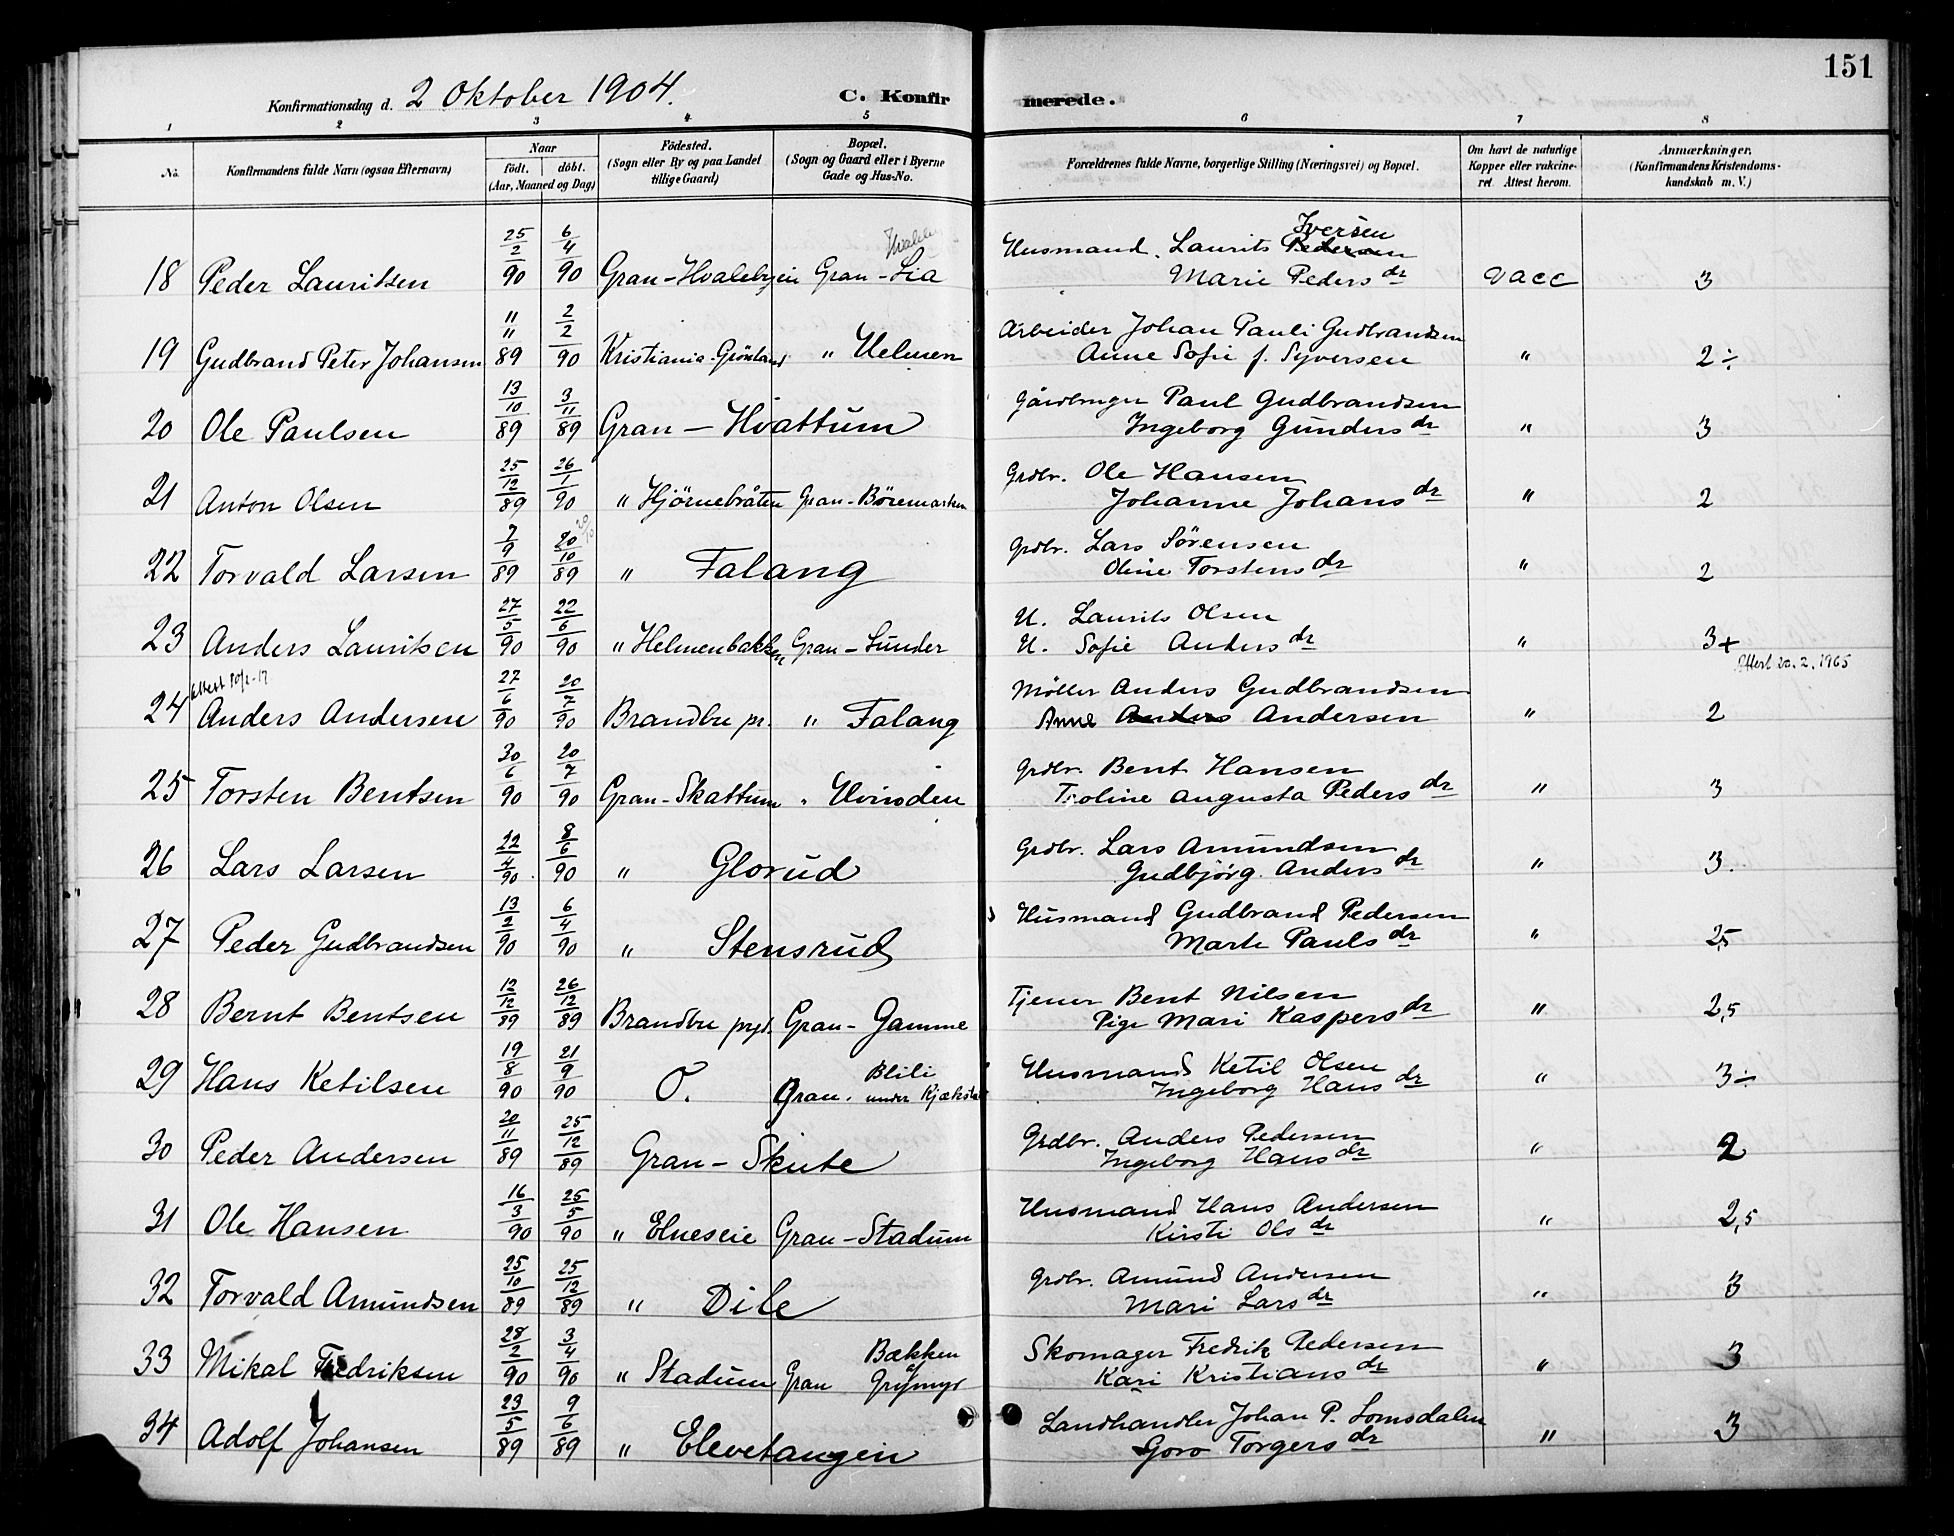 151
Konfirmationsdag d. 2 Oktober 1904.
C. Konfirmerede.
1 2 3 4 5 6 7 8
No.
Konfirmandens fulde Navn (ogsaa Efternavn)
Naar
födt. döbt.
(Aar, Maaned og Dag)
Födested.
(Sogn eller By og paa Landet
tillige Gaard)
Bopæl.
(Sogn og Gaard eller i Byerne
Gade og Hus-No.
Forældrenes fulde Navne, borgerlige Stilling (Næringsvei) og Bopæl.
Om havt de naturlige
Kopper eller vakcine-
ret. Attest herom.
Anmærkninger.
(Konfirmandens Kristendoms-
kundskab m. V.)
18 Peder Lauritsen 25/2 90 6/4 90 Gran - Hvalebyein Gran - Lia Husmand. Laurits Pedersen Iversen
Marie Peders dr vacc 3
19 Gudbrand Peter Johansen 11/11 89 2/2 90 Kristiania-Grönland " Helmen Arbeider Johan Pauli Gudbrandsen
Anne Sofie f. Syversen " 2÷
20 Ole Paulsen 13/10 89 3/11 89 Gran - Hvattum Gårdbruger Paul Gudbrandsen
Ingeborg Gunders dr " 3
21 Anton Olsen 25/12 89 26/1 90 " Hjörnebråten Gran - Böremarken Grdbr. Ole Hansen
Johanne Johans dr " 2
22 Torvald Larsen 7/9 89 20/10 89 " Falang Grdbr. Lars Sörensen
Oline Torstens dr " 2
23 Anders Lauritsen 27/5 90 22/6 90 " Helmenbakken Gran - Sunder U. Laurits Olsen
U. Sofie Anders dr " 3+
Attest 20.2.1965
24 Anders Andersen 27/6 90 20/7 90 Brandbu pr. " Falang Möller Anders Gudbrandsen
Anne Anders Andersen " 2
25 Torsten Bentsen 30/6 90 20/7 90 Gran - Skattum " Hvinden Grdbr. Bent Hansen
Troline Augusta Peders dr " 3
26 Lars Larsen 22/4 90 8/6 90 " Glorud Grdbr. Lars Amundsen
Gudbjörg Anders dr " 3.
27 Peder Gudbrandsen 13/2 90 6/4 90 " Stensrud Husmand Gudbrand Pedersen
Marte Pauls dr " 2,5
28 Bernt Bentsen 12/12 89 26/12 89 Brandbu prgd. Gran - Gamme Tjener Bent Nilsen
Pige Mari Kaspers dr " 2,5
29 Hans Ketilsen 19/8 90 21/9 90 O. Gran. Blili
under Kjækstad Husmand Ketil Olsen
Ingeborg Hans dr " 3÷
30 Peder Andersen 20/11 89 25/12 89 Gran - Skute Grdbr. Anders Pedersen
Ingeborg Hans dr " 2
31 Ole Hansen 16/3 90 25/5 90 " Elneseie Gran - Stadum Husmand Hans Andersen
Kirsti Ols dr " 2,5
32 Torvald Amundsen 25/10 89 25/12 89 " Dile Grdbr. Amund Andersen
Mari Lars dr " 3
33 Mikal Fredriksen 28/2 90 3/4 90 " Stadum Gran Bækken
Grymyr Skomager Fredrik Pedersen
Kari Kristians dr " 3
34 Adolf Johansen 23/5 89 9/6 89 " Elevetangen Landhandler Johan P. Lomsdalen
Goro Torgers dr " 3